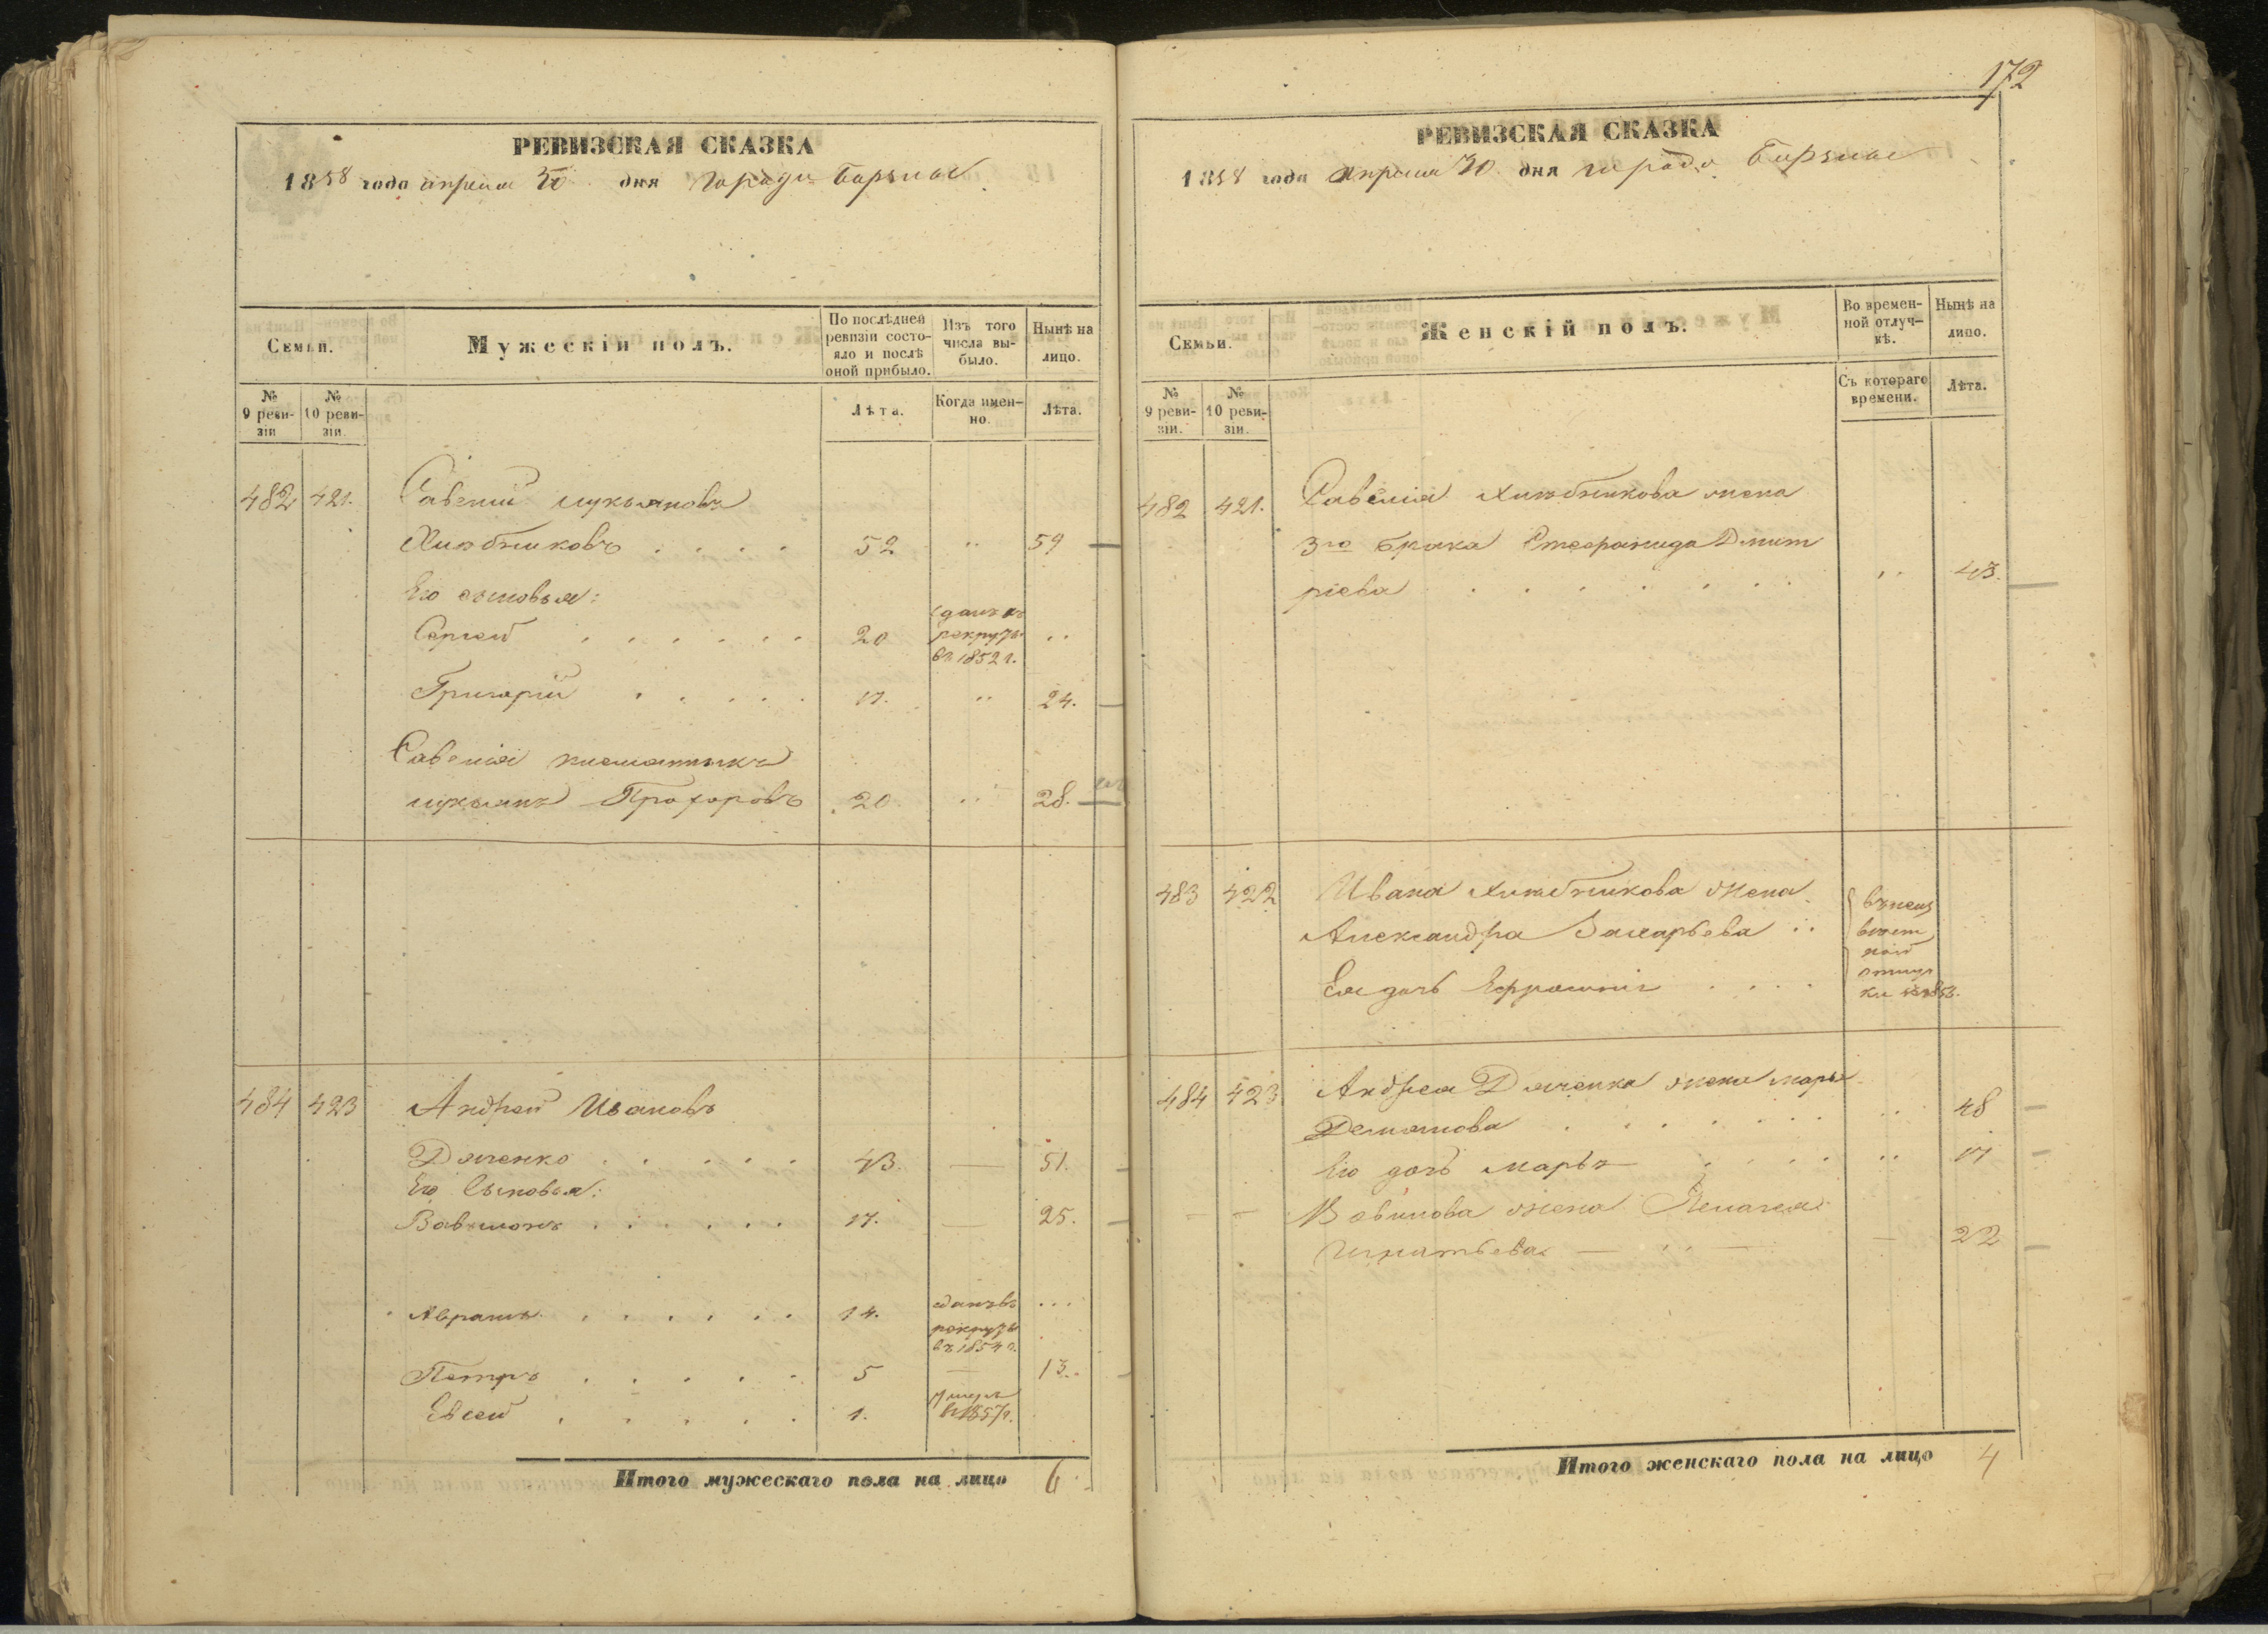 РЕВИЗСКАЯ СКАЗКА
1858 года апреля 30 дня города
Семьи.
Мужескій полъ.
По послѣдней ревизіи состояло и послѣ оной прибыло.
Изъ того числа выбыло.
Нынѣ на лицо.
№ 9 ревизіи
№ 10 ревизіи.
Лѣта.
Когда именно.
Лѣта.
482 421. Савелій Лукьяновъ
Хлѣбниковъ . . . . 52 " 59
Его сыновья:
сданъ въ
Сергей . . . . . . 20 рекруты ..
въ 1852 г.
Григорій . . . . . 17. " 24.
Савелія племянникъ
Лукьянъ Прохоровъ 20 " 28.
484 423 Андрей Ивановъ
Дяченко . . . . . 43. — 51.
Его Сыновья:
Вавилонъ . . . . . . 17. — 25.
Аврамъ . . . . . . 14. сданъ въ ...
рекруты
въ 1854 г.
Петръ . . . . . 5 — 13..
Евсей . . . . . 1. умеръ
в 1857 г.
Итого мужескаго пола на лицо 6
172
РЕВИЗСКАЯ СКАЗКА
1858 года апреля 30 дня города
Семьи.
Женскій полъ.
Во временной отлучкѣ.
Нынѣ на лицо.
№ 9 ревизіи.
№ 10 ревизіи.
Съ котораго времени.
Лѣта.
482 421. Савелія Хлѣбникова жена
3го брака Стефанида Дмит
ріева . . . . . . . " 43.
483 422 Ивана Хлѣбникова жена
Александра Захарьева ..
Ея дочь . . . .
484 423 Андрея Дяченка жена Марья
Демьянова . . . . . . .. 48
Его дочь Марья . . . . .. 17
Вавилова жена Пелагея
Игнатьева — .. — — 22
Итого женскаго пола на лицо 4